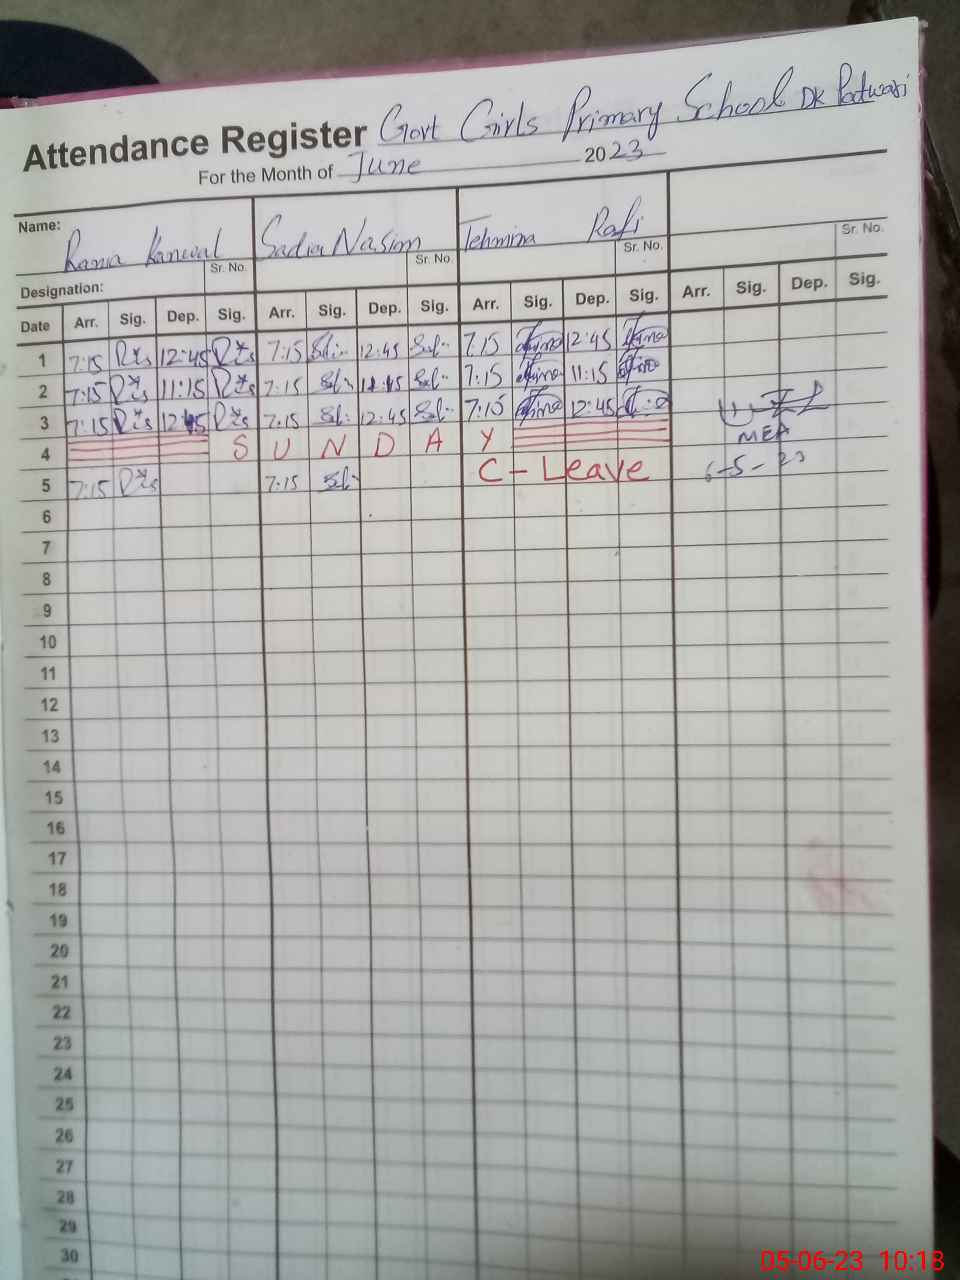 Attendance Register Govt Girls Primary School DK Patwari
For the Month of June 2023
Name: Rania Kanwal Sadia Nasim Tehmina Rafi
Sr. No. Sr. No. Sr. No. Sr. No.
Designation:
Date Arr. Sig. Dep. Sig. Arr. Sig. Dep. Sig. Arr. Sig. Dep. Sig. Arr. Sig. Dep. Sig.
1 7:15 12:45 7:15 12:45 7:15 12:45
2 7:15 11:15 7:15 11:15 7:15 11:15
3 7:15 12:45 7:15 12:45 7:15 12:45
MEA
4 S U N D A Y
5 7:15 7:15 C - Leave 6-5-23
6
7
8
9
10
11
12
13
14
15
16
17
18
19
20
21
22
23
24
25
26
27
28
29
30
05-06-23 10:18